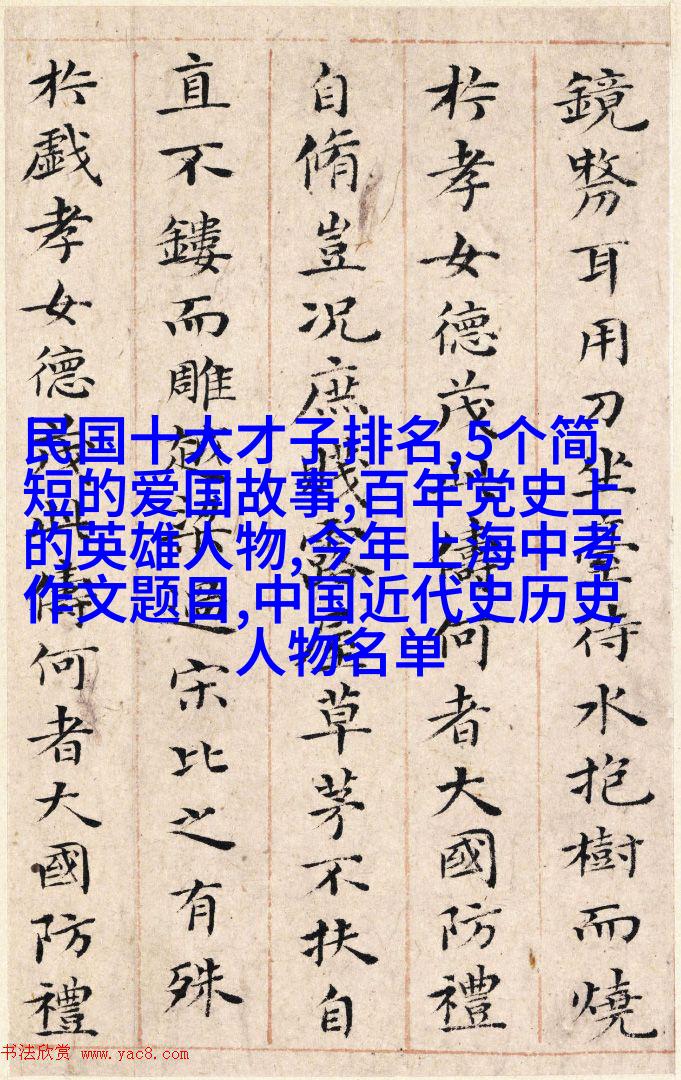 鏡剺耳用刀坐臺待水抱樹而燒
於孝女德茂此儔何者大國防禮
自脩豈況庶賤露屋草茅不扶自
直不鏤而雕越梁過宋比之有殊
於戲孝女德茂此儔何者大國防禮
民国十大才子排名,5个简
短的爱国故事,百年党史上
的英雄人物,今年上海中考
作文题目,中国近代史历史
人物名单
书法欣赏 www.yac8.com